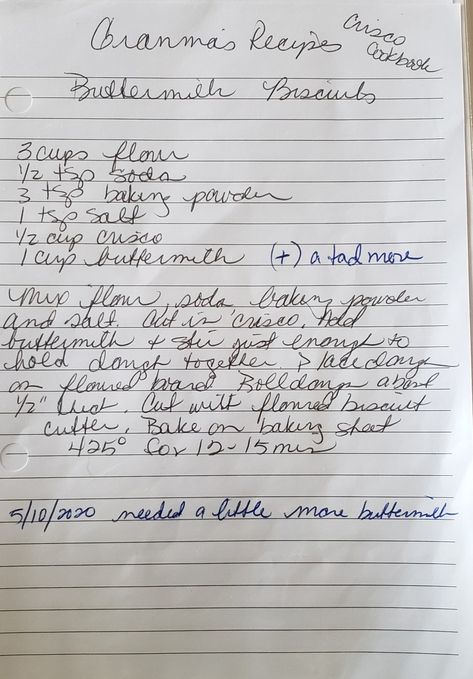 Granma's Recipes
Crisco
Cookbook
Buttermilk Biscuits
3 cups flour
1/2 tsp soda
3 tsp baking powder
1 tsp salt
1/2 cup crisco
1 cup buttermilk (+) a tad more
Mix flour, soda baking powder
and salt. Cut in crisco. Add
buttermilk & stir just enough to
hold dough together. Place dough
on floured board Roll dough about
1/2" thick. Cut with floured biscuit
cutter. Bake on baking sheet
425° for 12-15 min
5/10/2020 needed a little more buttermilk